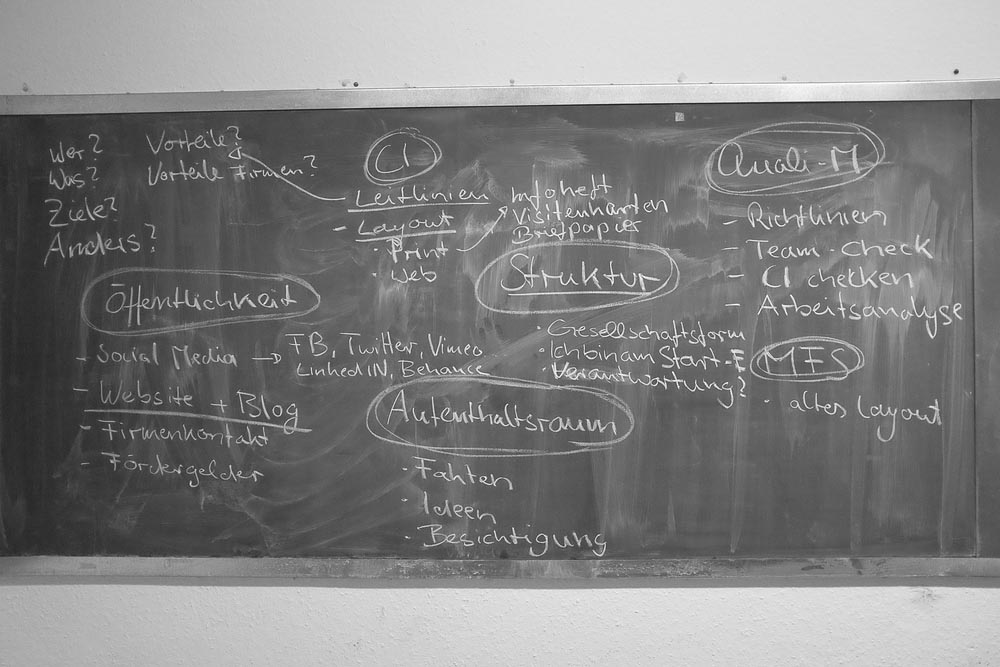 Wer?
Was?
Ziele?
Anders?
Vorteile?
Vorteile Firmen?
CI
- Leitlinien
- Layout
· Print
· Web
Infoheft
Visitenkarten
Briefpapier
Quali-M
- Richtlinien
- Team-Check
- CI checken
- Arbeitsanalyse
Öffentlichkeit
- Social Media → FB, Twitter, Vimeo
LinkedIN, Behance
- Website + Blog
- Firmenkontakt
- Fördergelder
Struktur
· Gesellschaftsform
· Ich bin am Start-E
· Verantwortung?
MFS
· altes Layout
Aufenthaltsraum
· Fakten
· Ideen
· Besichtigung